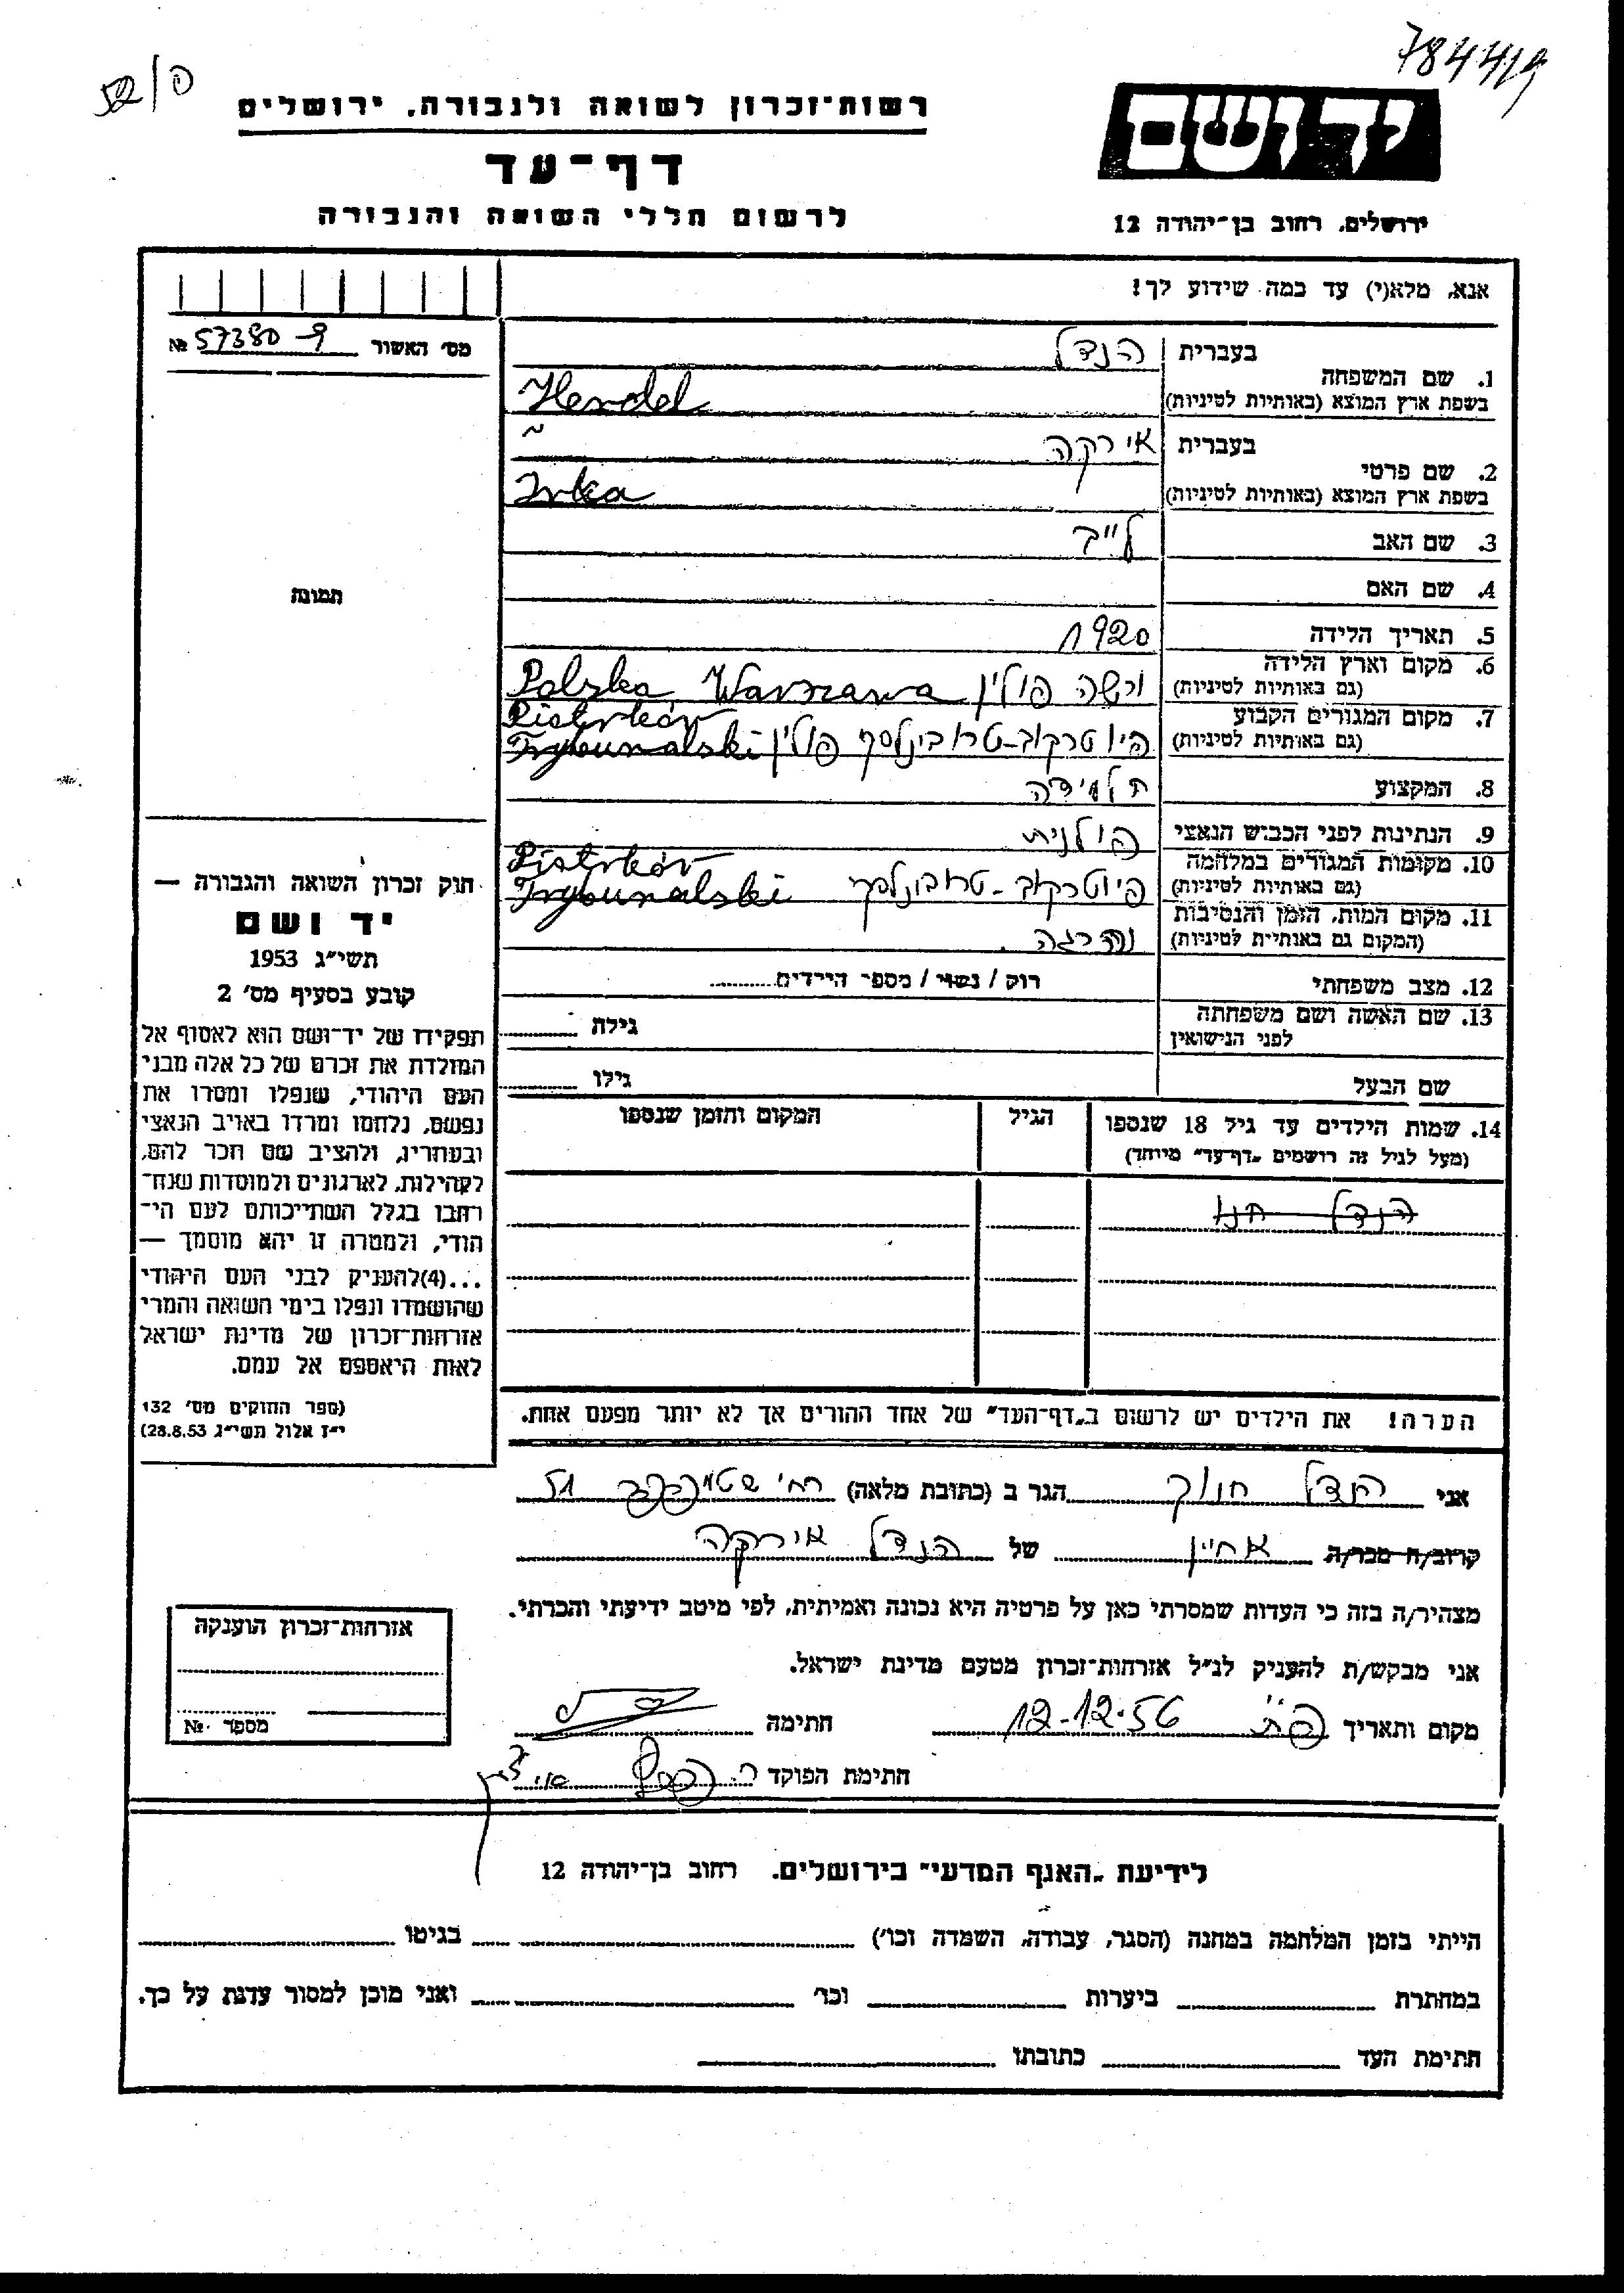 784419
52/פ
יד ושם
רשות־זכרון לשואה ולגבורה, ירושלים
דף־עד
לרשום חללי השואה והגבורה
ירושלים, רחוב בן־יהודה 12
אנא, מלא(י) עד כמה שידוע לך!
מס׳ האשור 57380 №
1. שם המשפחה
בעברית הנדל
בשפת ארץ המוצא (באותיות לטיניות) Hendel
2. שם פרטי
בעברית אירקה
בשפת ארץ המוצא (באותיות לטיניות) Irka
3. שם האב לייב
4. שם האם
5. תאריך הלידה 1920
6. מקום וארץ הלידה
(גם באותיות לטיניות) ורשה פולין Warszawa Polska
7. מקום המגורים הקבוע
(גם באותיות לטיניות) פיוטרקוב-טריבונלסקי פולין Piotrków Trybunalski
8. המקצוע תלמידה
9. הנתינות לפני הכבוש הנאצי פולנית
10. מקומות המגורים במלחמה
(גם באותיות לטיניות) פיוטרקוב-טריבונלסקי Piotrków Trybunalski
11. מקום המות, הזמן והנסיבות
(המקום גם באותיות לטיניות) נהרגה.
12. מצב משפחתי רוק / נשוי / מספר הילדים
13. שם האשה ושם משפחתה
לפני הנישואין גילה
שם הבעל גילו
14. שמות הילדים עד גיל 18 שנספו
(מעל לגיל זה רושמים „דף־עד״ מיוחד)
הגיל
המקום והזמן שנספו
הנדל
תמונה
חוק זכרון השואה והגבורה —
יד ושם
תשי״ג 1953
קובע בסעיף מס׳ 2
תפקידו של יד־ושם הוא לאסוף אל
המולדת את זכרם של כל אלה מבני
העם היהודי, שנפלו ומסרו את
נפשם, נלחמו ומרדו באויב הנאצי
ובעוזריו, ולהציב שם וזכר להם,
לקהילות, לארגונים ולמוסדות שנח־
רבו בגלל השתייכותם לעם הי־
הודי, ולמטרה זו יהא מוסמך —
...(4) להעניק לבני העם היהודי
שהושמדו ונפלו בימי השואה והמרי
אזרחות־זכרון של מדינת ישראל
לאות היאספם אל עמם.
(ספר החוקים מס׳ 132
י״ז אלול תשי״ג 28.8.53)
הערה! את הילדים יש לרשום ב„דף־העד״ של אחד ההורים אך לא יותר מפעם אחת.
אני הנדל חנוך הגר ב (כתובת מלאה) רח׳ 51
קרוב/ה מכר/ה אחיין של הנדל אירקה
מצהיר/ה בזה כי העדות שמסרתי כאן על פרטיה היא נכונה ואמיתית, לפי מיטב ידיעתי והכרתי.
אני מבקש/ת להעניק לנ״ל אזרחות־זכרון מטעם מדינת ישראל.
מקום ותאריך פ״ת 12-12-56 חתימה
חתימת הפוקד
אזרחות־זכרון הוענקה
מספר №
לידיעת „האגף המדעי״ בירושלים, רחוב בן־יהודה 12
הייתי בזמן המלחמה במחנה (הסגר, עבודה, השמדה וכו׳) בגיטו
במחתרת ביערות וכו׳ ואני מוכן למסור עדות על כך.
חתימת העד כתובתו